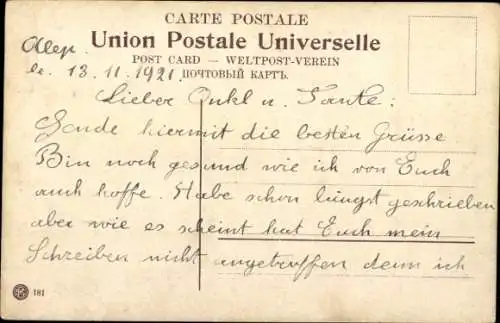 CARTE POSTALE
Union Postale Universelle
POST CARD — WELTPOST-VEREIN
ПОЧТОВЫЙ КАРТЪ.
Alep.
le. 13. 11. 1921.
Lieber Onkel u. Tante:
Sende hiermit die besten Grüsse
Bin noch gesund wie ich von Euch
auch hoffe. Habe schon längst geschrieben
aber wie es scheint hat Euch mein
Schreiben nicht angetroffen denn ich
181